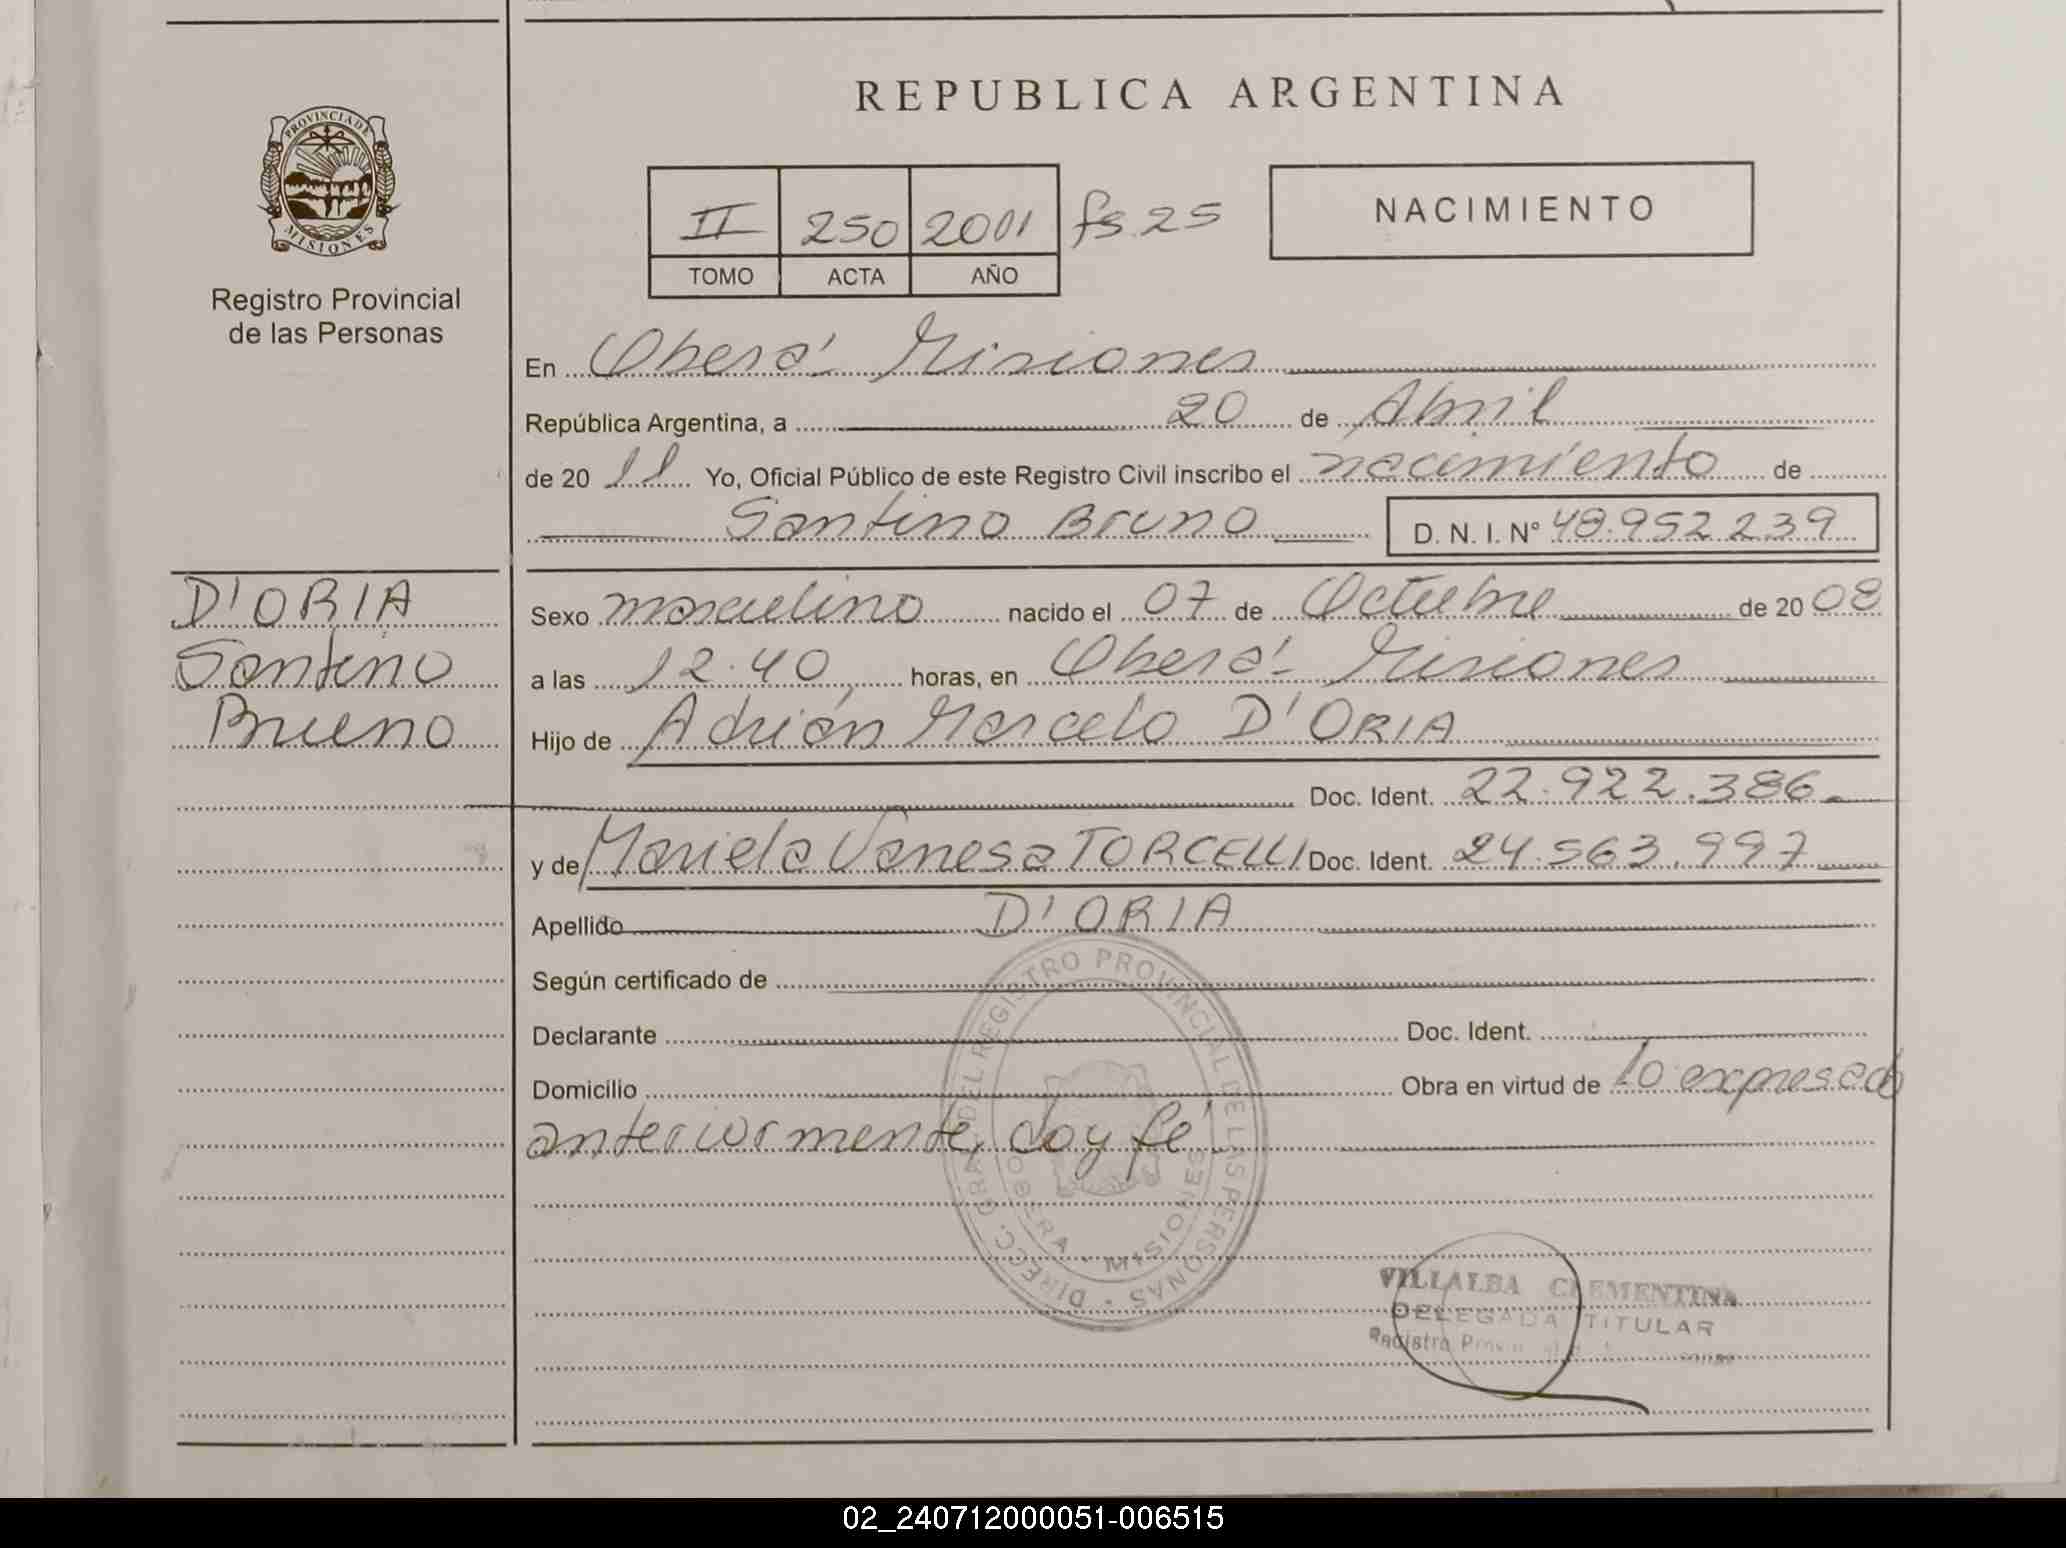 REPUBLICA ARGENTINA
PROVINCIA DE
MISIONES
Registro Provincial
de las Personas
II 250 2011 fs. 25
TOMO ACTA AÑO
NACIMIENTO
En Oberá Misiones
República Argentina, a 20 de Abril
de 20 11 Yo, Oficial Público de este Registro Civil inscribo el nacimiento de
Santino Bruno D. N. I. Nº 48.952.239
D'ORIA
Santino
Bruno
Sexo masculino nacido el 07 de Octubre de 20 08
a las 12.40 horas, en Oberá Misiones
Hijo de Adrián Marcelo D'ORIA
Doc. Ident. 22.922.386.
y de Mariela Vanesa TORCELLI Doc. Ident. 24.563.997
Apellido D'ORIA
Según certificado de
Declarante Doc. Ident.
Domicilio Obra en virtud de lo expresado
anteriormente, doy fé
DIRECC. GRAL. DEL REGISTRO PROVINCIAL DE LAS PERSONAS
OBERA - MISIONES
VILLALBA CLEMENTINA
DELEGADA TITULAR
Registro
02_240712000051-006515